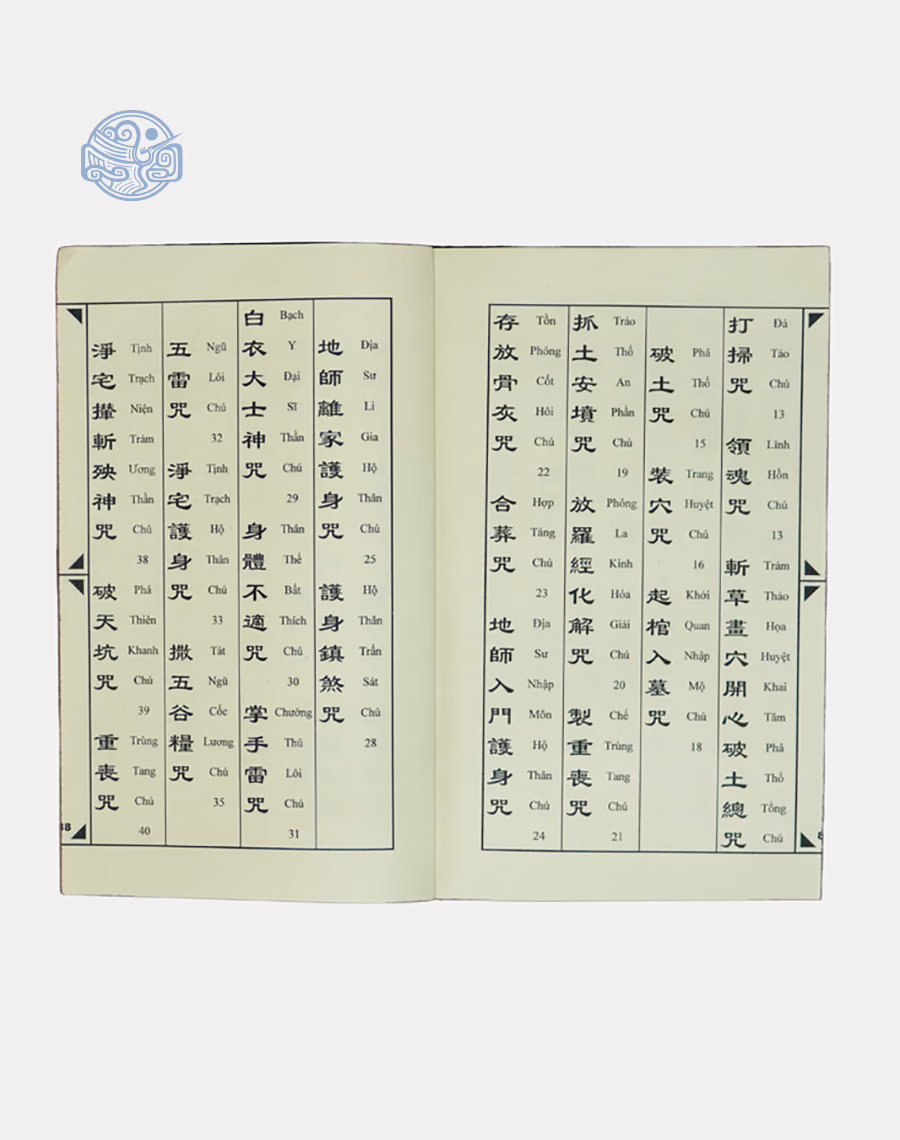 打掃咒 領魂咒 斬草畫穴開心破土總咒
Đả Táo Chú 13 Lĩnh Hồn Chú 13 Trảm Thảo Họa Huyệt Khai Tâm Phá Thổ Tổng Chú
破土咒 裝穴咒 起棺入墓咒
Phá Thổ Chú 15 Trang Huyệt Chú 16 Khởi Quan Nhập Mộ Chú 18
抓土安墳咒 放羅經化解咒 製重喪咒
Trảo Thổ An Phần Chú 19 Phóng La Kinh Hóa Giải Chú 20 Chế Trùng Tang Chú 21
存放骨灰咒 合葬咒 地師入門護身咒
Tồn Phóng Cốt Hôi Chú 22 Hợp Táng Chú 23 Địa Sư Nhập Môn Hộ Thân Chú 24
地師離家護身咒 護身鎮煞咒
Địa Sư Li Gia Hộ Thân Chú 25 Hộ Thân Trấn Sát Chú 28
白衣大士神咒 身體不適咒 掌手雷咒
Bạch Y Đại Sĩ Thần Chú 29 Thân Thể Bất Thích Chú 30 Chưởng Thủ Lôi Chú 31
五雷咒 淨宅護身咒 撒五谷糧咒
Ngũ Lôi Chú 32 Tịnh Trạch Hộ Thân Chú 33 Tát Ngũ Cốc Lương Chú 35
淨宅攆斬殃神咒 破天坑咒 重喪咒
Tịnh Trạch Niện Trảm Ương Thần Chú 38 Phá Thiên Khanh Chú 39 Trùng Tang Chú 40